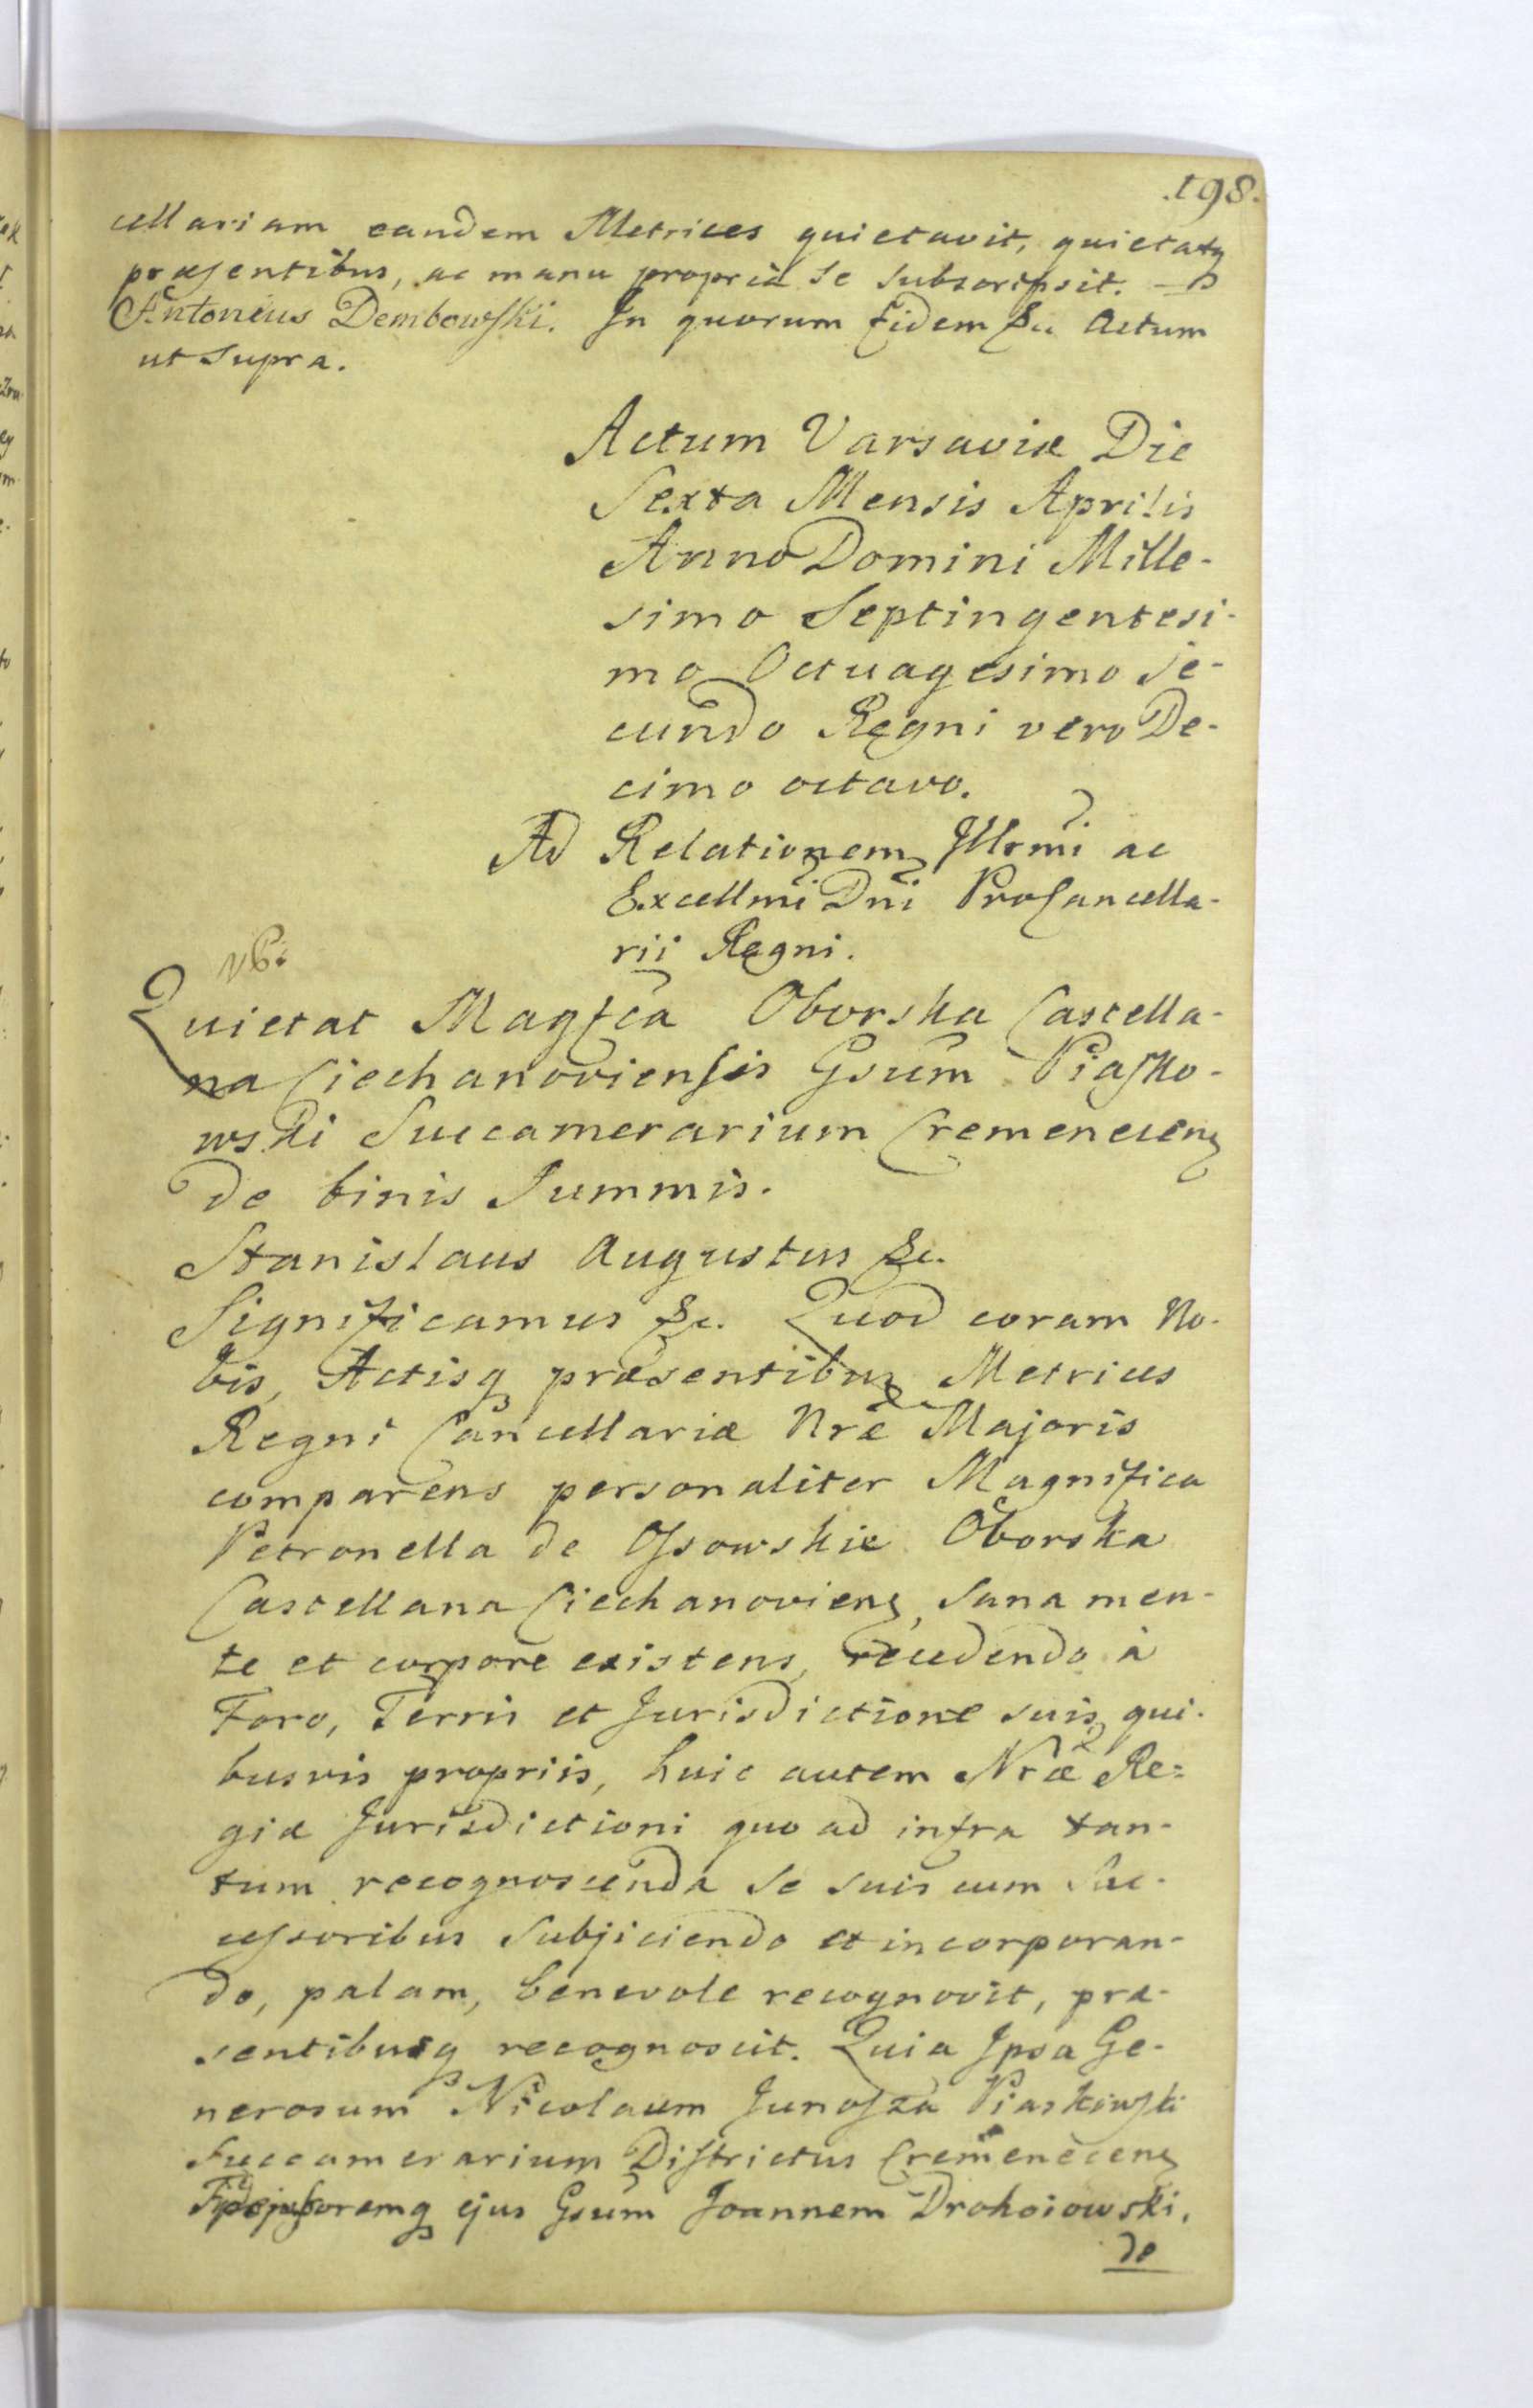 198.
cellariam eandem Metrices quietavit, quietatq
præsentibus, ac manu propria se subscripsit.
Antonius Dembowski. In quorum fidem &c Actum
ut Supra.
Actum Varsaviæ Die
Sexta Mensis Aprilis
Anno Domini Mille-
simo Septingentesi-
mo Octuagesimo Se-
cundo Regni vero De-
cimo octavo.
Ad Relationem Illrmi ac
Excellmi Dni ProCancella-
rii Regni.
Quietat Magfca Oborska Castella-
na Ciechanoviensis Gsum Piasko-
wski Succamerarium Cremenecens
de binis Summis.
Stanislaus Augustus &c.
Significamus &c. Quod coram No-
bis, Actisq præsentibus Metrices
Regni Cancellariæ Nræ Majoris
comparens personaliter Magnifica
Petronella de Ossowskie Oborska
Castellana Ciechanoviens, sana men-
te et corpore existens, recedendo à
Foro, Terris et Jurisdictione suis qui-
busvis propriis, huic autem Nræ Re=
giæ Jurisdictioni quo ad infra tan-
tum recognoscenda se suis cum Suc-
cessoribus subjiciendo et incorporan-
do, palam, benevole recognovit, præ-
sentibusq recognoscit. Quia Ipsa Ge-
nerosum Nicolaum Junosza Piaskowski
Succamerarium Districtus Cremenecens
Fidejussoremq ejus Gsum Joannem Drohoiowski,
de